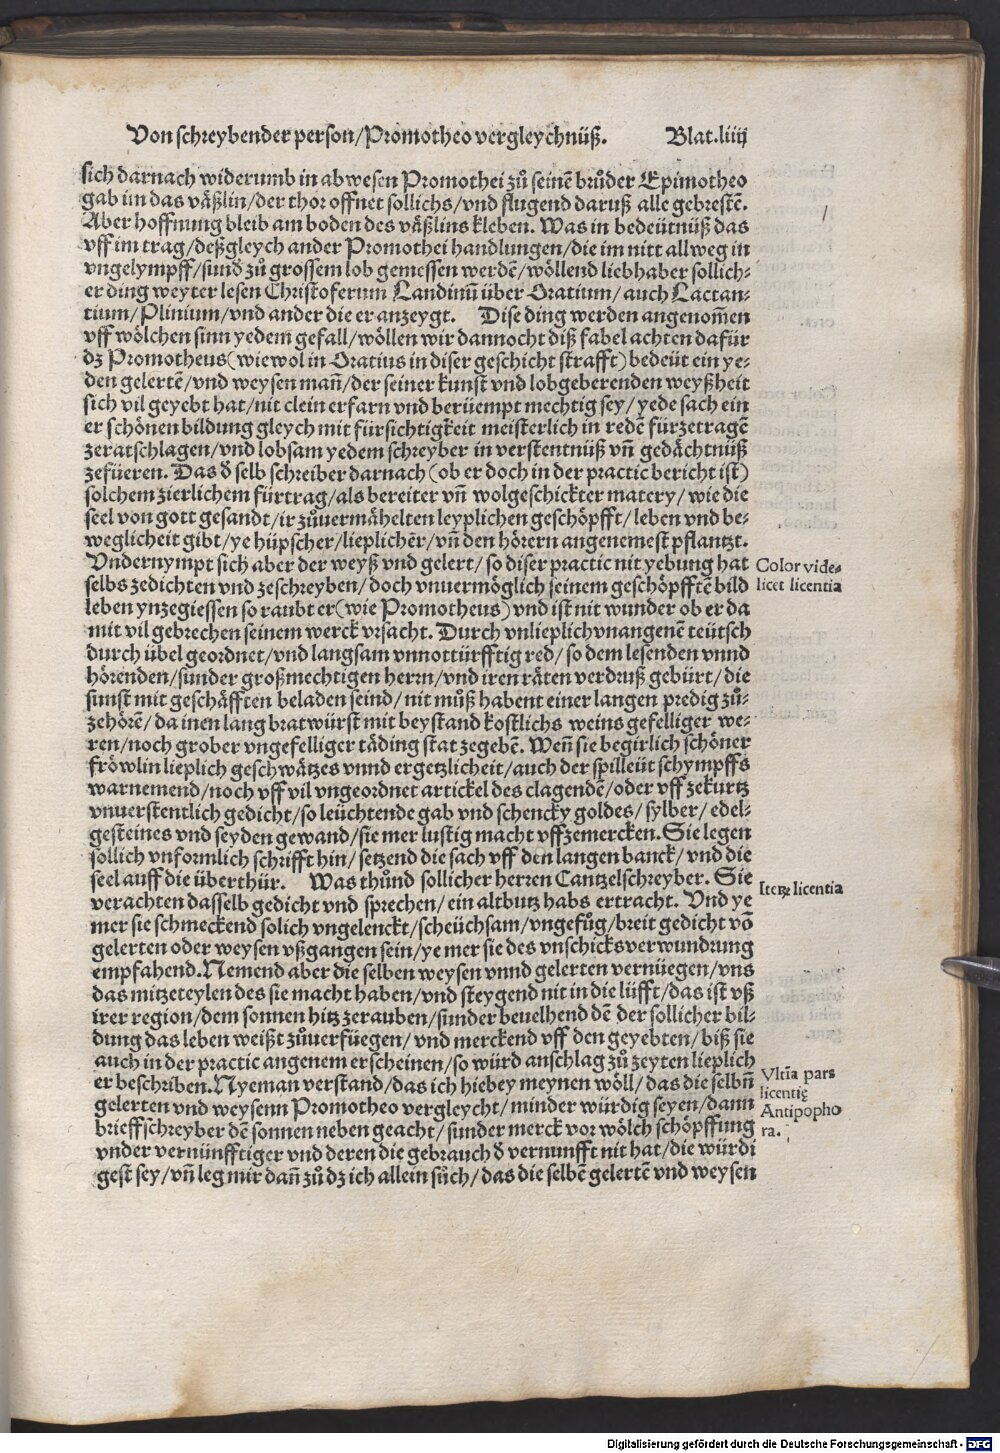 Von schreybender person/Promotheo vergleychnüß. Blat.liiij
sich darnach widerumb in abwesen Promothei zů seinē brůder Epimotheo
gab im das väßlin/der thor offnet sollichs/vnd flugend daruß alle gebrestē.
Aber hoffnung bleib am boden des väßlins kleben. Was in bedeütnüß das
vff im trag/deßgleych ander Promothei handlungen/die im nitt allweg in
vngelympff/sund zů grossem lob gemessen werdē/wöllend liebhaber sollich-
er ding weyter lesen Christoferum Landinū über Oratium/auch Lactan-
tium/Plinium/vnd ander die er anzeygt. Dise ding werden angenom̄en
vff wölchen sinn yedem gefall/wöllen wir dannocht diß fabel achten dafür
dz Promotheus(wiewol in Oratius in diser geschicht strafft)bedeüt ein ye-
den gelertē/vnd weysen mañ/der seiner kunst vnd lobgeberenden weyßheit
sich vil geyebt hat/nit clein erfarn vnd berüempt mechtig sey/yede sach ein
er schönen bildung gleych mit fürsichtigkeit meisterlich in redē fürzetragē
zeratschlagen/vnd lobsam yedem schreyber in verstentnüß vñ gedächtnüß
zefüeren. Das d̄ selb schreiber darnach (ob er doch in der practic bericht ist)
solchem zierlichem fürtrag/als bereiter vñ wolgeschickter matery/wie die
seel von gott gesandt/ir zůuermähelten leyplichen geschöpfft/leben vnd be-
weglicheit gibt/ye hüpscher/lieplichēr/vñ den hörern angenemest pflantzt.
Vndernympt sich aber der weyß vnd gelert/so diser practic nit yebung hat
Color vide-
selbs zedichten vnd zeschreyben/doch vnuermöglich seinem geschöpfftē bild
licet licentia
leben ynzegiessen so raubt er(wie Promotheus)vnd ist nit wunder ob er da
mit vil gebrechen seinem werck vrsacht. Durch vnlieplich vnangenē teütsch
durch übel geordnet/vnd langsam vnnottürfftig red/so dem lesenden vnnd
hörenden/sunder großmechtigen herrn/vnd iren räten verdruß gebürt/die
sunst mit geschäfften beladen seind/nit můß habent einer langen predig zů-
zehörē/da inen lang bratwürst mit beystand kostlichs weins gefelliger we-
ren/noch grober vngefelliger täding stat zegebē. Weñ sie begirlich schöner
fröwlin lieplich geschwätzes vnnd ergetzlicheit/auch der spilleüt schympffs
warnemend/noch vff vil vngeordnet artickel des clagendē/oder vff zekurtz
vnuerstentlich gedicht/so leüchtende gab vnd schencky goldes/sylber/edel-
gesteines vnd seyden gewand/sie mer lustig macht vffzemercken. Sie legen
sollich vnformlich schrifft hin/setzend die sach vff den langen banck/vnd die
seel auff die überthür. Was thůnd sollicher herren Cantzelschreyber. Sie
Itez licentia
verachten dasselb gedicht vnd sprechen/ein altbutz habs ertracht. Vnd ye
mer sie schmeckend solich vngelenckt/scheüchsam/vngefůg/breit gedicht vō
gelerten oder weysen vßgangen sein/ye mer sie des vnschicks verwundrung
empfahend. Nemend aber die selben weysen vnnd gelerten vernüegen/vns
das mitzeteylen des sie macht haben/vnd steygend nit in die lüfft/das ist vß
irer region/dem sonnen hitz zerauben/sunder beuelhend dē der sollicher bil-
dung das leben weißt zůuerfüegen/vnd merckend vff den geyebten/biß sie
auch in der practic angenem erscheinen/so würd anschlag zů zeyten lieplich
Vltīa pars
er beschriben. Nyeman verstand/das ich hiebey meynen wöll/das die selbñ
licentię
gelerten vnd weysenn Promotheo vergleycht/minder würdig seyen/dann
Antipopho
brieffschreyber dē sonnen neben geacht/sunder merck vor wölch schöpffung
ra.
vnder vernünfftiger vnd deren die gebrauch d̄ vernunfft nit hat/die würdi
gest sey/vñ leg mir dañ zů dz ich allein sůch/das die selbē gelertē vnd weysen
Digitalisierung gefördert durch die Deutsche Forschungsgemeinschaft - DFG